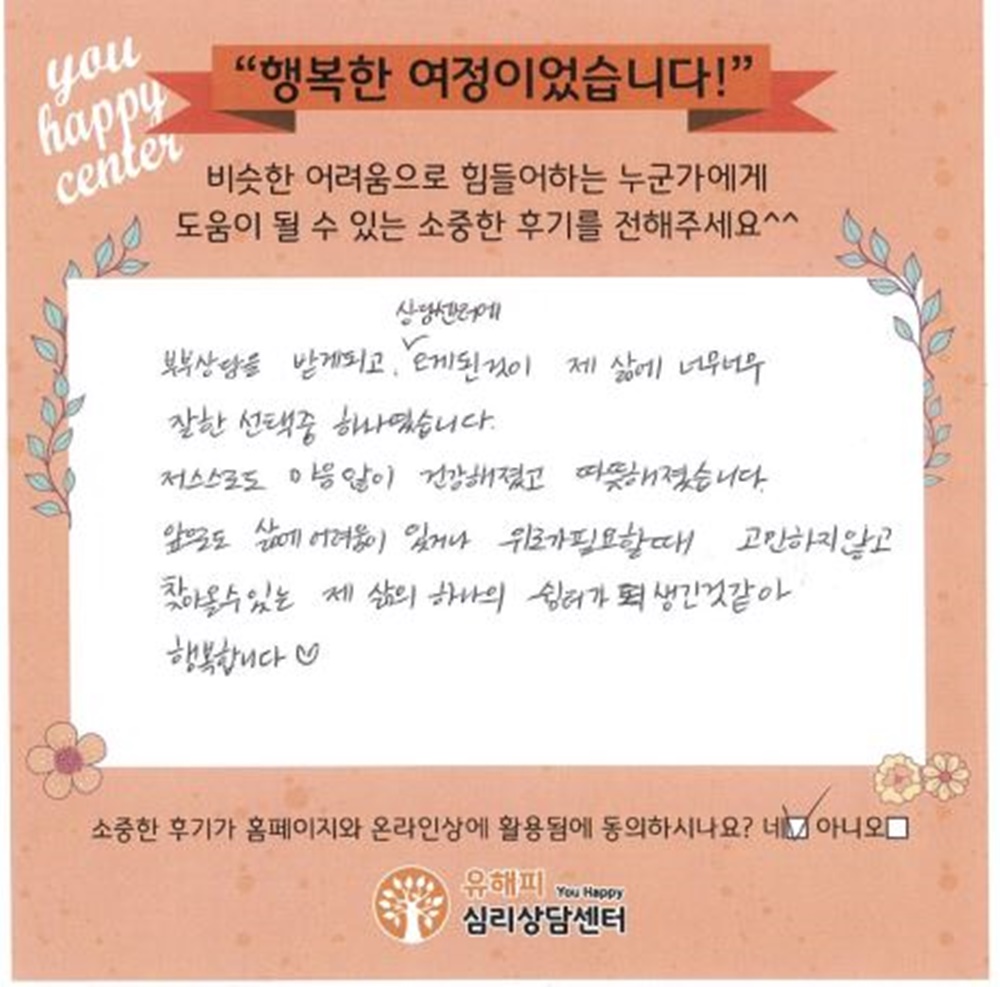 you
happy
center
“행복한 여정이었습니다!”
비슷한 어려움으로 힘들어하는 누군가에게
도움이 될 수 있는 소중한 후기를 전해주세요^^
상담센터에
부부상담을 받게되고, 오게된것이 제 삶에 너무너무
잘한 선택중 하나였습니다.
저스스로도 마음앓이 건강해졌고 따뜻해졌습니다.
앞으로도 삶에 어려움이 있거나 위로가필요할때 고민하지않고
찾아올수있는 제 삶의 하나의 쉼터가 생긴것같아
행복합니다♡
소중한 후기가 홈페이지와 온라인상에 활용됨에 동의하시나요? 네☑ 아니오☐
유해피 You Happy
심리상담센터